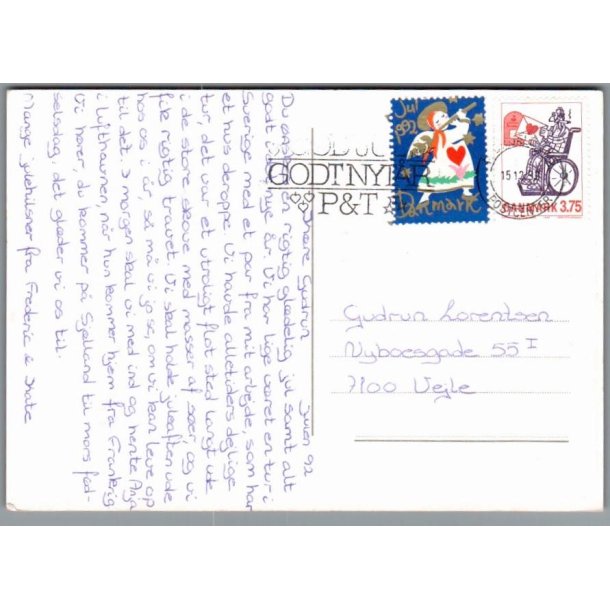 Julen 92
Kære Gudrun
Du ønskes en rigtig glædelig jul samt alt
godt i det nye år. Vi har lige været en tur i
Sverige med et par fra mit arbejde, som har
et hus deroppe. Vi havde alletiders dejlige
tur, det var et utroligt flot sted langt ude
i de store skove med masser af søer, og vi
fik rigtig travet. Vi skal holde juleaften ude
hos os i år, så må vi jo se, om vi kan leve op
til det. I morgen skal vi med ind og hente Anja
i lufthavnen, når hun kommer hjem fra Frankrig
Vi hører, du kommer på Sjælland til mors fød-
selsdag, det glæder vi os til.
Mange julehilsner fra Frederic &
GODT JUL
GODT NYTÅR
P&T
Jul
1992
Danmark
15.12.92
DANMARK 3.75
Gudrun Lorentsen
Nyboesgade 55 I
7100 Vejle